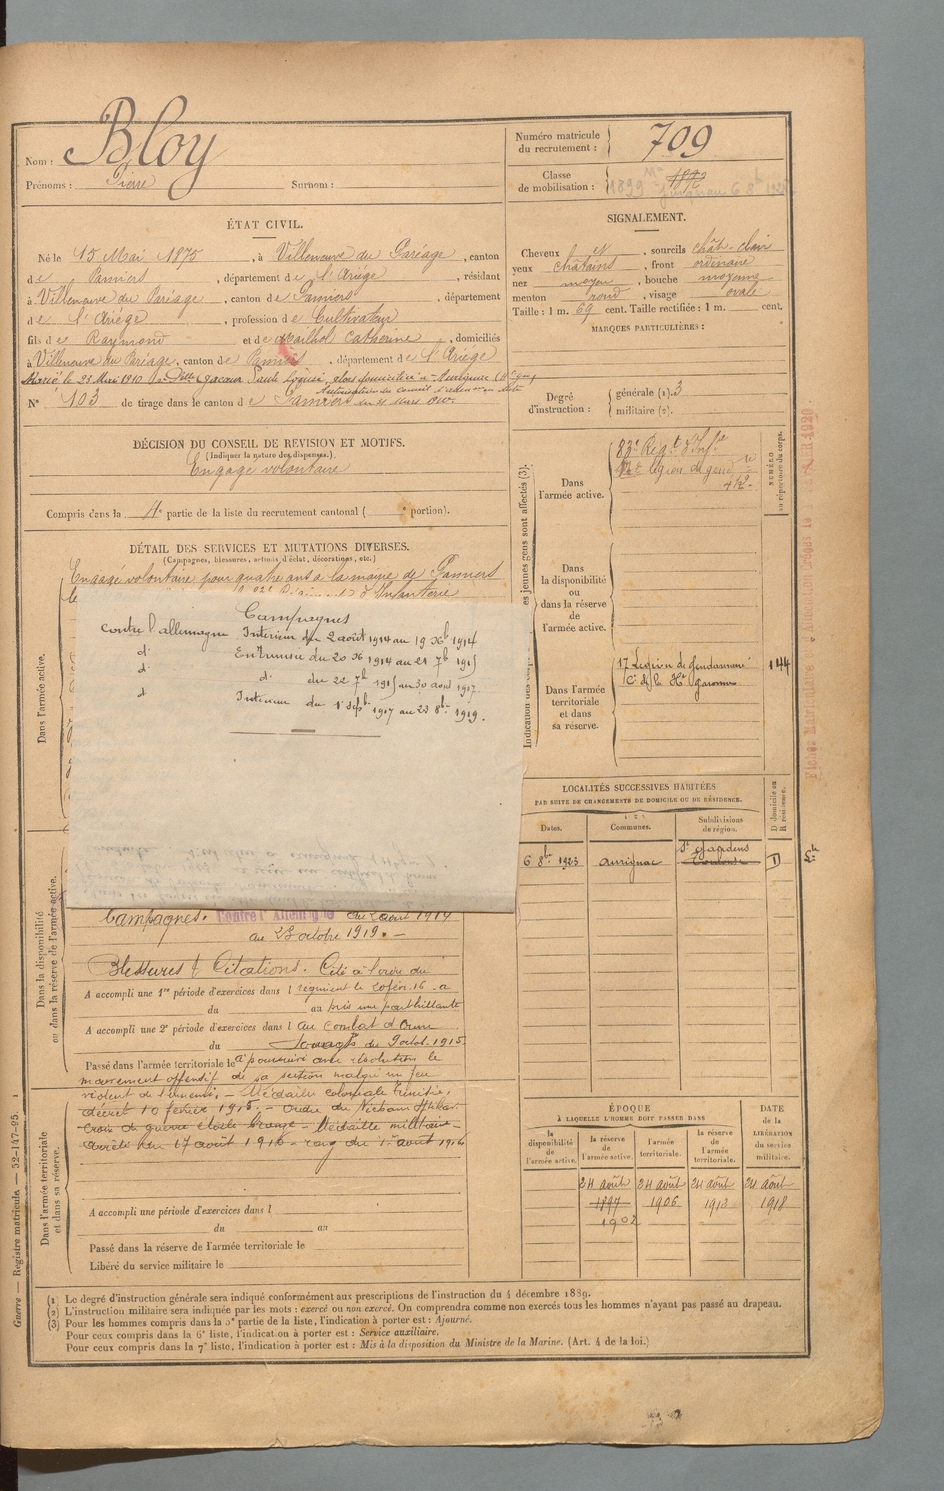 Nom : Bloy
Prénoms : Pierre Surnom :
ÉTAT CIVIL.
Né le 15 Mai 1875, à Villeneuve du Paréage, canton
de Pamiers, département de l'Ariège, résidant
à Villeneuve du Paréage, canton de Pamiers, département
de l'Ariège, profession de Cultivateur
fils de Raymond et de Mailhol Catherine, domiciliés
à Villeneuve du Paréage, canton de Pamiers, département de l'Ariège
Marié le 23 Mai 1910 Paule domiciliée à
N° 103 de tirage dans le canton de Pamiers
DÉCISION DU CONSEIL DE REVISION ET MOTIFS.
(Indiquer la nature des dispenses.)
Engagé volontaire
Compris dans la 4e partie de la liste du recrutement cantonal ( e portion).
DÉTAIL DES SERVICES ET MUTATIONS DIVERSES.
(Campagnes, blessures, actions d'éclat, décorations, etc.)
Dans l'armée active.
Engagé volontaire pour quatre ans à la mairie de Pamiers
le d'Infanterie
Campagnes
contre l'allemagne Intérieur du 2 août 1914 au 19 Xb 1914
d° En Tunisie du 20 X 1914 au 21 7b 1915
d° d° du 22 7b 1915 au 30 août 1917
d° Intérieur du 1 sepb 1917 au 23 8bre 1919.
Dans la disponibilité
ou dans la réserve de l'armée active.
Campagnes. Contre l'Allemagne du 2 août 1914
au 23 octobre 1919. —
Blessures & Citations. Cité à l'ordre du
A accompli une 1re période d'exercices dans l régiment le 20 fév. 16 a
du au pris une part brillante
A accompli une 2e période d'exercices dans l au combat d'Oum
du Souagh du 9 oct. 1915.
Passé dans l'armée territoriale le a poursuivi avec résolution le
mouvement offensif de sa section malgré un feu
violent de l'ennemi. — Médaille coloniale Tunisie,
décret 10 février 1915. — Ordre du Nicham Iftikar.
Croix de guerre étoile bronze — Médaille militaire —
arrêté du 17 août 1916 — rang du 1er août 1916
Dans l'armée territoriale
et dans sa réserve.
A accompli une période d'exercices dans l
du au
Passé dans la réserve de l'armée territoriale le
Libéré du service militaire le
Numéro matricule
du recrutement : 709
Classe
de mobilisation : 1899
SIGNALEMENT.
Cheveux et, sourcils chât-clair
yeux châtains, front ordinaire
nez moyen, bouche moyenne
menton rond, visage ovale
Taille : 1 m. 69 cent. Taille rectifiée : 1 m. cent.
MARQUES PARTICULIÈRES :
Degré
d'instruction : générale (1). 3
militaire (2).
Indication des corps
es jeunes gens sont affectés (3).
NUMÉRO
au répertoire du corps.
Dans
l'armée active.
83e Regt d'Infie
légion de gend
412
Dans
la disponibilité
ou
dans la réserve
de
l'armée active.
Dans l'armée
territoriale
et dans
sa réserve.
17 Légion de Gendarmerie 144
Cie de la Hte Garonne
LOCALITÉS SUCCESSIVES HABITÉES
PAR SUITE DE CHANGEMENTS DE DOMICILE OU DE RÉSIDENCE.
Dates. Communes. Subdivisions
de région. D domicile ou
R résidence.
6 8bre 1923 Aurignac St Gaudens
Toulouse D
ÉPOQUE
À LAQUELLE L'HOMME DOIT PASSER DANS
DATE
de la
LIBÉRATION
du service
militaire.
la
disponibilité
de
l'armée active.
la réserve
de
l'armée active.
l'armée
territoriale.
la réserve
de
l'armée
territoriale.
24 août 24 août 24 août 24 août
1897 1906 1913 1918
1902
(1) Le degré d'instruction générale sera indiqué conformément aux prescriptions de l'instruction du 4 décembre 1889.
(2) L'instruction militaire sera indiquée par les mots : exercé ou non exercé. On comprendra comme non exercés tous les hommes n'ayant pas passé au drapeau.
(3) Pour les hommes compris dans la 5e partie de la liste, l'indication à porter est : Ajourné.
Pour ceux compris dans la 6e liste, l'indication à porter est : Service auxiliaire.
Pour ceux compris dans la 7e liste, l'indication à porter est : Mis à la disposition du Ministre de la Marine. (Art. 4 de la loi.)
Guerre — Registre matricule. — 52-147-95. 1